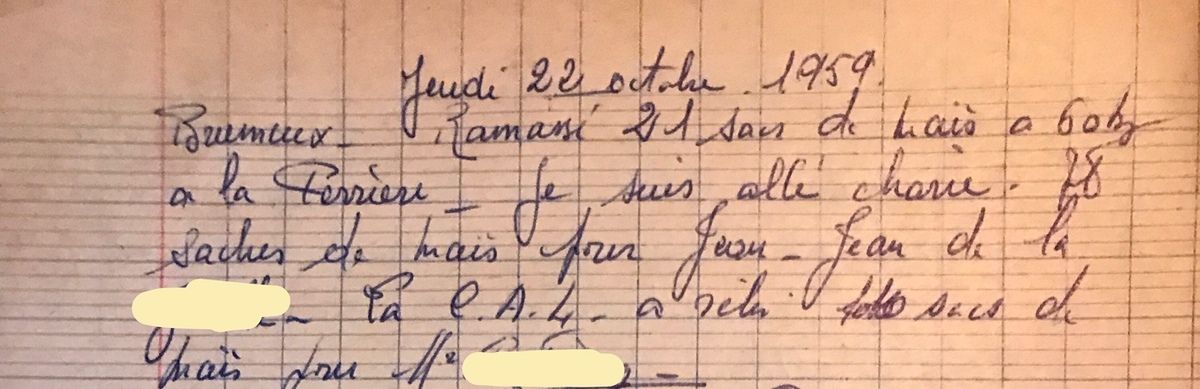 Jeudi 22 octobre. 1959.
Brumeux - Ramassé 21 sacs de maïs a 60kg
a la Ferrière - Je suis allé charié. 28
saches de maïs pour Jean-Jean de la
La C.A.L. a sacs de
maïs pour Mr